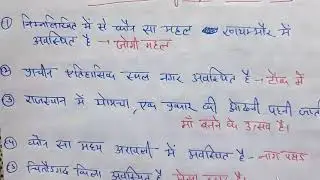 ① निम्नलिखित में से कौन सा महल रणथम्भौर में
अवस्थित है → जोगी महल
② प्राचीन ऐतिहासिक स्थल नगर अवस्थित है → टोंक में
③ राजस्थान में पोमचा, एक प्रकार की ओढनी पहनी जाती
माँ बनने के उत्सव है।
④ कौन सा मध्य अरावली में अवस्थित है - नाग पहाड
चित्तौडगढ किला अवस्थित है